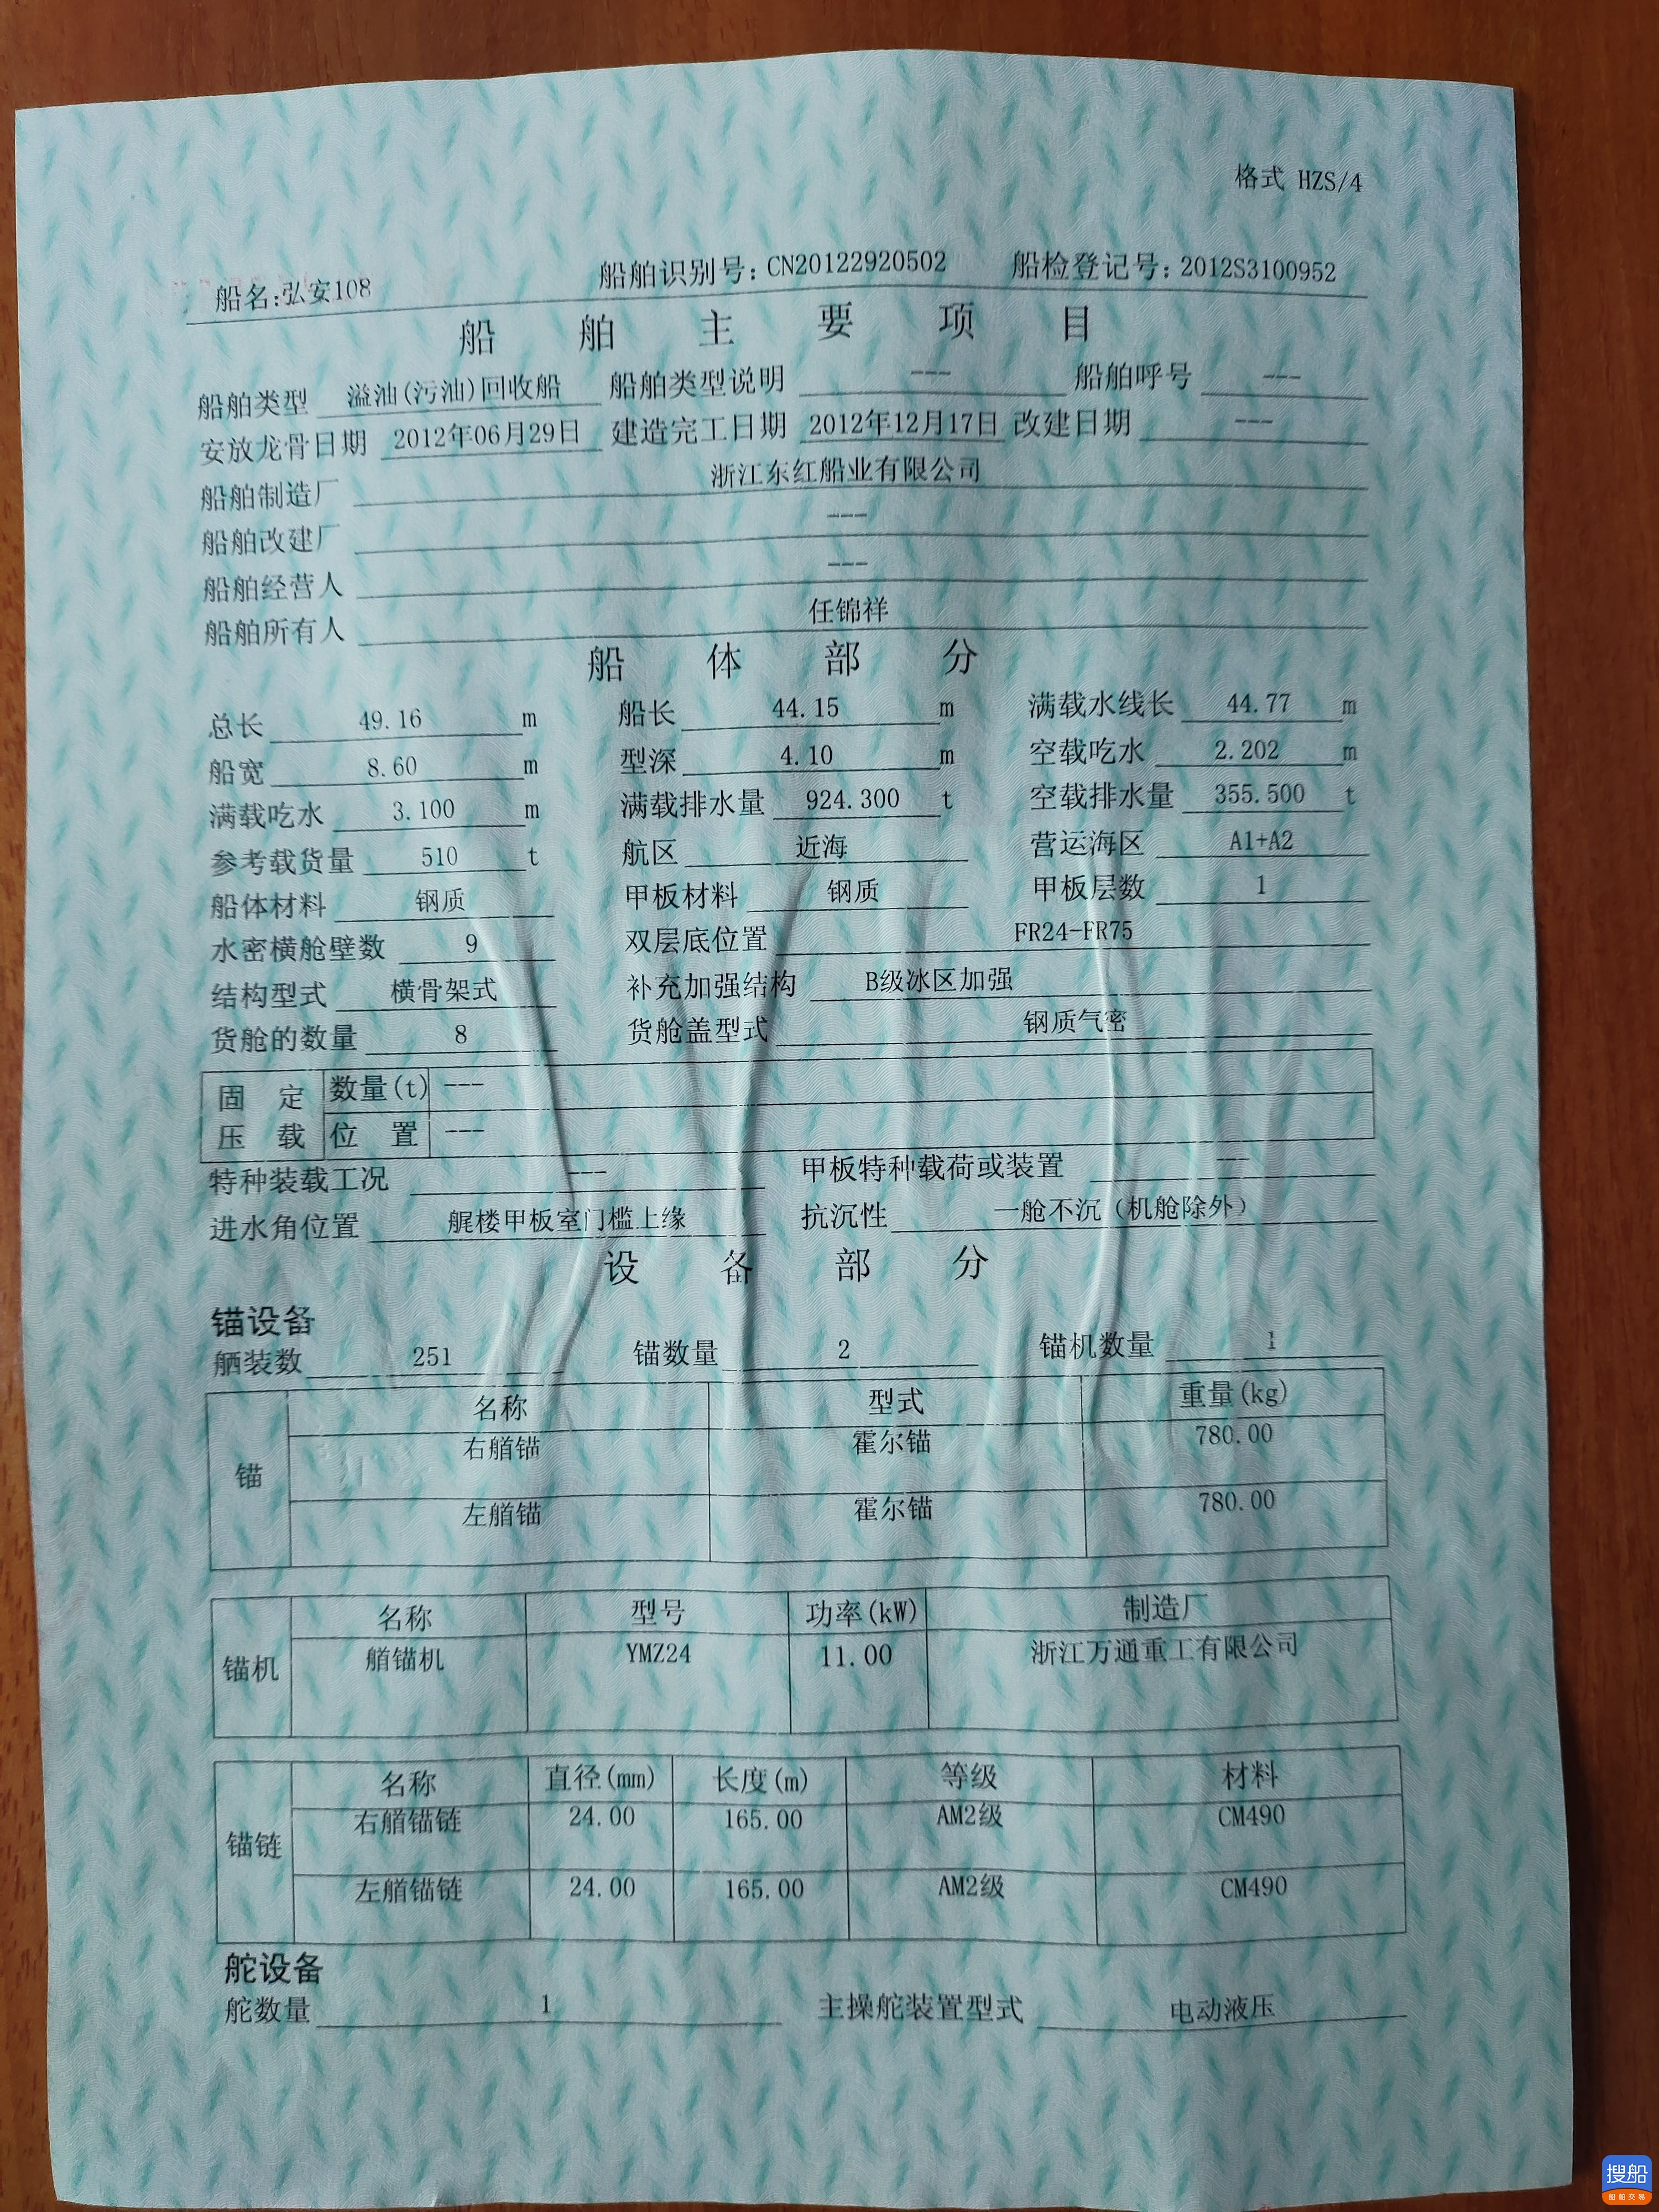 格式 HZS/4
船名:弘安108 船舶识别号:CN20122920502 船检登记号:2012S3100952
船舶主要项目
船舶类型 溢油(污油)回收船 船舶类型说明 --- 船舶呼号 ---
安放龙骨日期 2012年06月29日 建造完工日期 2012年12月17日 改建日期 ---
船舶制造厂 浙江东红船业有限公司
船舶改建厂 ---
船舶经营人 ---
船舶所有人 任锦祥
船体部分
总长 49.16 m 船长 44.15 m 满载水线长 44.77 m
船宽 8.60 m 型深 4.10 m 空载吃水 2.202 m
满载吃水 3.100 m 满载排水量 924.300 t 空载排水量 355.500 t
参考载货量 510 t 航区 近海 营运海区 A1+A2
船体材料 钢质 甲板材料 钢质 甲板层数 1
水密横舱壁数 9 双层底位置 FR24-FR75
结构型式 横骨架式 补充加强结构 B级冰区加强
货舱的数量 8 货舱盖型式 钢质气密
固定 数量(t) ---
压载 位置 ---
特种装载工况 --- 甲板特种载荷或装置 ---
进水角位置 艉楼甲板室门槛上缘 抗沉性 一舱不沉（机舱除外）
设备部分
锚设备
舾装数 251 锚数量 2 锚机数量 1
名称 型式 重量(kg)
右艏锚 霍尔锚 780.00
锚
左艏锚 霍尔锚 780.00
名称 型号 功率(kW) 制造厂
锚机 艏锚机 YMZ24 11.00 浙江万通重工有限公司
名称 直径(mm) 长度(m) 等级 材料
右艏锚链 24.00 165.00 AM2级 CM490
锚链
左艏锚链 24.00 165.00 AM2级 CM490
舵设备
舵数量 1 主操舵装置型式 电动液压
搜船
船舶交易